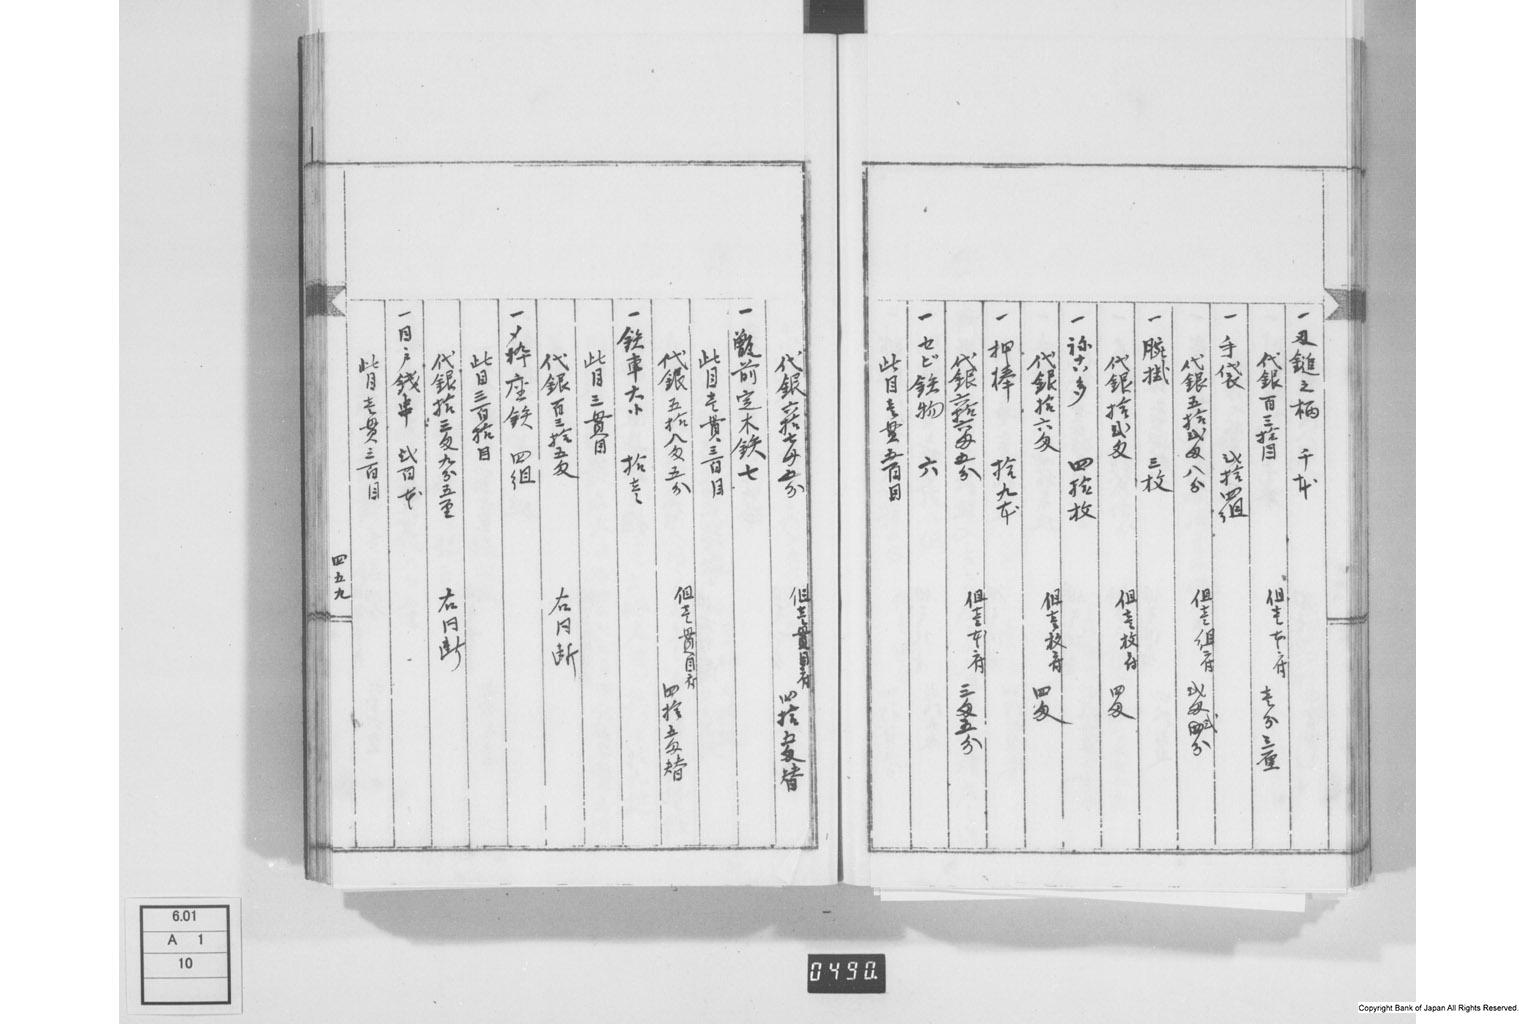 一 又鎚之柄 千本
代銀百三拾目 但壱本ニ付 壱分三厘
一 手袋 弐拾四組
代銀五拾弐匁八分 但壱組ニ付 弐匁弐分
一 腕掛 三枚
代銀拾弐匁 但壱枚ニ付 四匁
一 四拾枚
代銀拾六匁 但壱枚ニ付 四匁
一 押棒 拾九本
代銀六拾六匁五分 但壱本ニ付 三匁五分
一 セビ鉄物 六
此目壱貫五百目
代銀六拾七匁五分 但壱貫目ニ付 四拾五匁替
一 甑前定木鉄 七
此目壱貫三百目
代銀五拾八匁五分 但壱貫目ニ付 四拾五匁替
一 鉄車大小 拾壱
此目三貫目
代銀百三拾五匁 右同断
一 〆枠座鉄 四組
此目三百拾目
代銀拾三匁九分五厘 右同断
一 目戸銭串 弐百本
此目壱貫三百目
四五九
6.01
A 1
10
0490.
Copyright Bank of Japan All Rights Reserved.